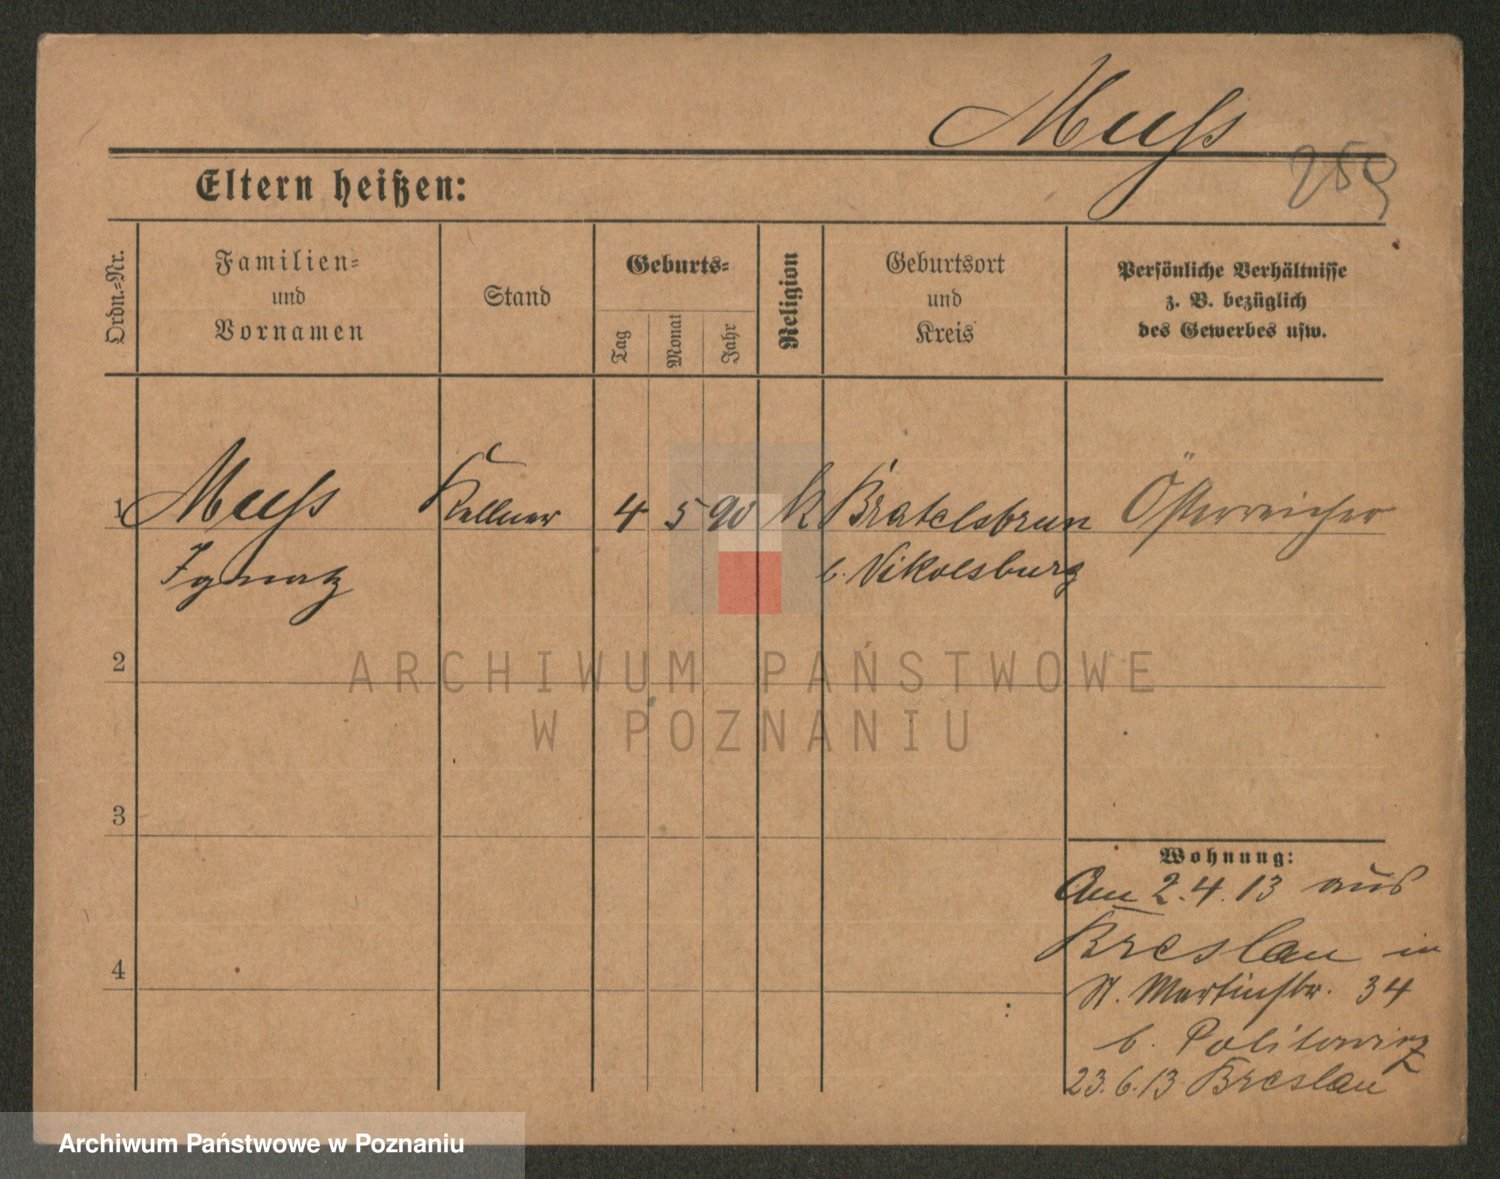 Muss
259
Eltern heißen:
Ordn.-Nr.
Familien-
und
Vornamen
Stand
Geburts-
Tag
Monat
Jahr
Religion
Geburtsort
und
Kreis
Persönliche Verhältnisse
z. B. bezüglich
des Gewerbes usw.
1 Muss Kellner 4 5 90 k Bratelsbrun Österreicher
Ignatz b. Nikolsburg
2
ARCHIWUM PAŃSTWOWE
W POZNANIU
3
Wohnung:
Am 2.4.13 aus
Breslau in
4
St. Martinstr. 34
b. Politowicz
23.6.13 Breslau
Archiwum Państwowe w Poznaniu